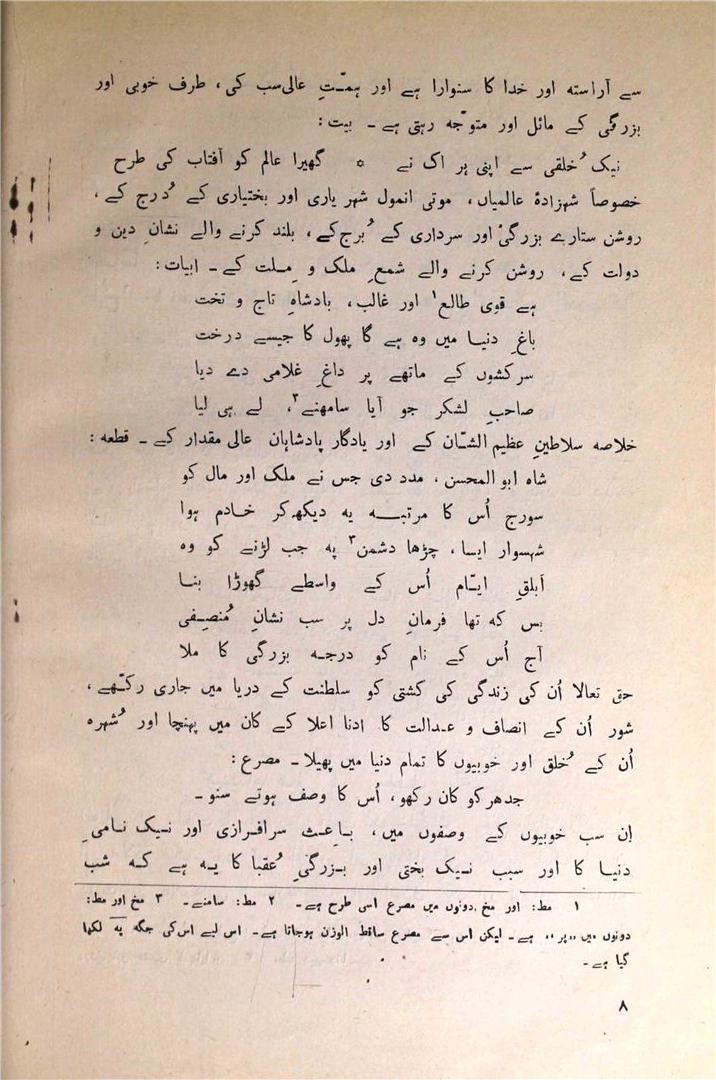 سے آراستہ اور خدا کا سنوارا ہے اور ہمّتِ عالی سب کی، طرف خوبی اور
بزرگی کے مائل اور متوّجہ رہتی ہے ـ بیت :
نیک خُلقی سے اپنی ہر اک نے * گھیرا عالم کو آفتاب کی طرح
خصوصاً شہزادۂ عالمیاں، موتی انمول شہر یاری اور بختیاری کے دُرج کے،
روشن ستارے بزرگیٔ اور سرداری کے بُرج کے، بلند کرنے والے نشانِ دین و
دولت کے، روشن کرنے والے شمعِ ملک و مِلت کے ـ ابیات :
ہے قوی طالع۱ اور غالب، بادشاہِ تاج و تخت
باغِ دنیا میں وہ ہے گا پھول کا جیسے درخت
سرکشوں کے ماتھے پر داغِ غلامی دے دیا
صاحبِ لشکر جو آیا سامھنے۲، لے ہی لیا
خلاصہ سلاطینِ عظیم الشّان کے اور یادگار پادشاہان عالی مقدار کے ـ قطعہ :
شاہ ابو المحسن، مدد دی جس نے ملک اور مال کو
سورج اُس کا مرتبہ یہ دیکھ کر خادم ہوا
شہسوار ایسا، چڑھا دشمن۳ پہ جب لڑنے کو وہ
اَبلقِ ایّام اُس کے واسطے گھوڑا بنا
بس کہ تھا فرمانِ دل پر سب نشانِ مُنصِفی
آج اُس کے نام کو درجہ بزرگی کا ملا
حق تعالا اُن کی زندگی کی کشتی کو سلطنت کے دریا میں جاری رکھّے،
شور اُن کے انصاف و عدالت کا ادنا اعلا کے کان میں پہنچا اور شُہرہ
اُن کے خُلق اور خوبیوں کا تمام دنیا میں پھیلا ـ مصرع :
جدھر کو کان رکھو، اُس کا وصف ہوتے سنو ـ
اِن سب خوبیوں کے وصفوں میں، باعِث سرافرازی اور نیک نامیِ
دنیا کا اور سبب نیک بختی اور بزرگیِ عُقبا کا یہ ہے کہ شب
۱ مط: اور مخ دونوں میں مصرع اسی طرح ہے ـ ۲ مط: سامنے ـ ۳ مخ اور مط:
دونوں میں ,,پر،، ہے ـ لیکن اس سے مصرع ساقط الوزن ہوجاتا ہے ـ اس لیے اس کی جگہ پہ لکھا
گیا ہے ـ
۸